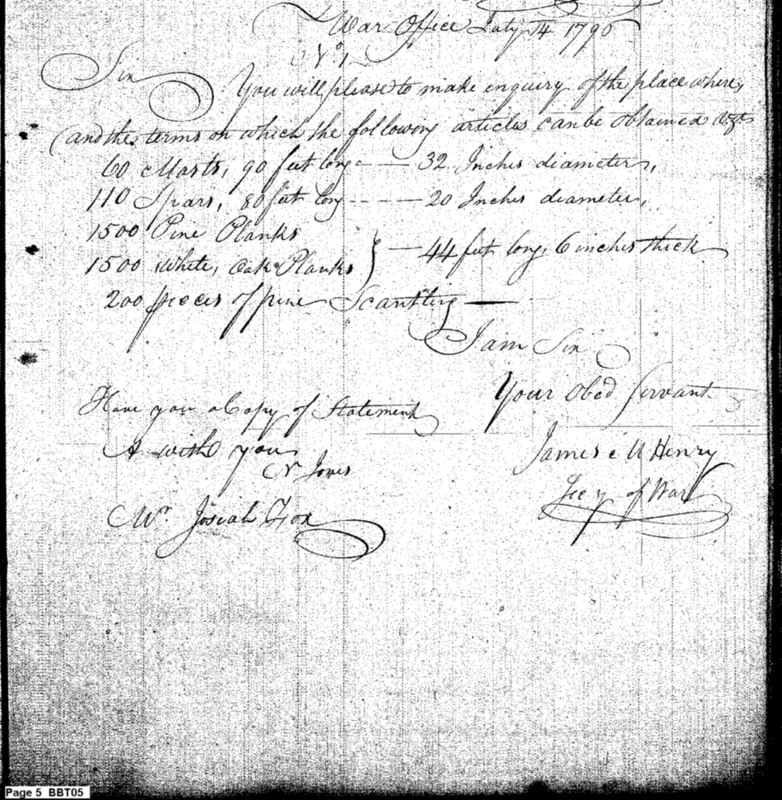 War Office July 14 1796
No. 1
Sir You will please to make enquiry of the place where,
and the terms on which the following articles can be obtained
60 Masts, 90 feet long - - 32 Inches diameter,
110 Spars, 80 feet long - - - - 20 Inches diameter,
1500 Pine Planks
1500 White, Oak Planks } - 44 feet long, 6 inches thick
200 pieces of pine Scantling
I am Sir
Your Obed Servant
James McHenry
Secy of War
Have you a Copy of Statement
A with you
Mr Josiah Fox
Page 5 BBT05